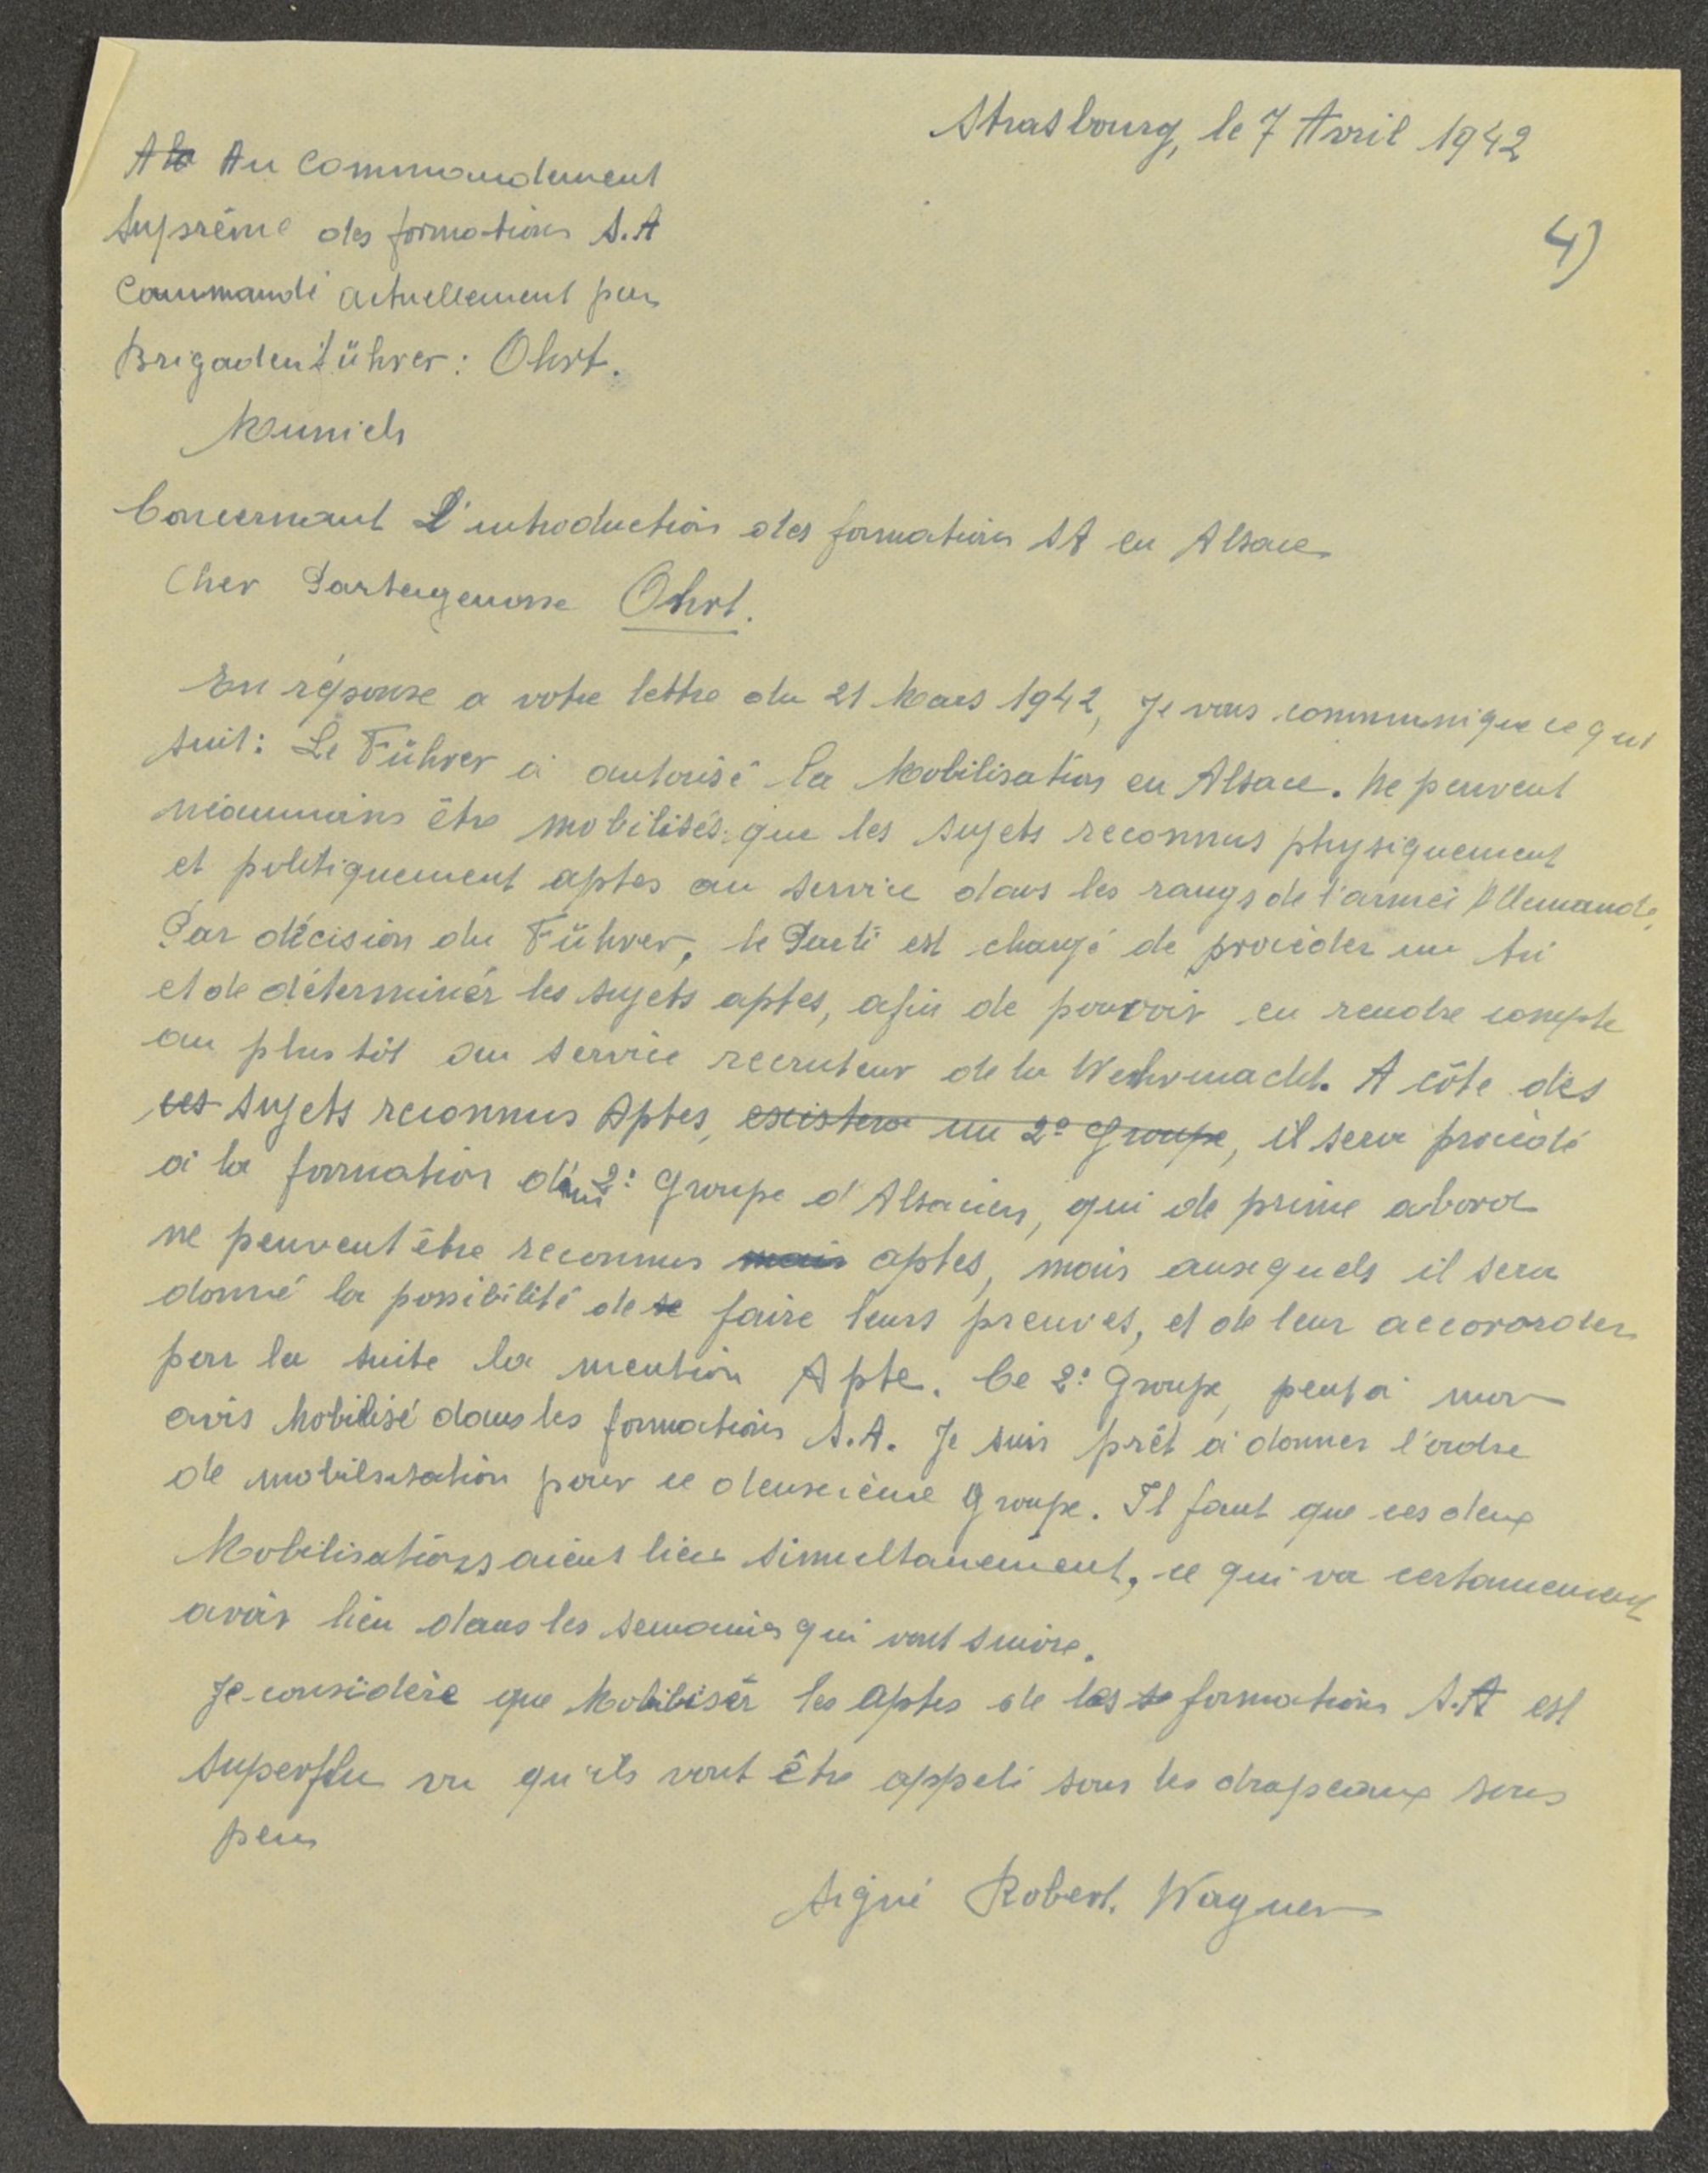 Strasbourg, le 7 Avril 1942
A la Au Commandement
Suprême des formations S.A
Commandé actuellement par
Brigadenführer : Ohrt.
Munich
4)
Concernant L'introduction des formations SA en Alsace
Cher Parteigenosse Ohrt.
En réponse a votre lettre du 21 Mars 1942, Je vous communique ce qui
suit : Le Führer a autorisé la Mobilisation en Alsace. Ne peuvent
néanmoins être mobilisés que les sujets reconnus physiquement
et politiquement aptes au service dans les rangs de l'armée Allemande.
Par décision du Führer, le Parti est chargé de procéder un tri
et de déterminér les sujets aptes, afin de pouvoir en rendre compte
au plus tôt au service recruteur de la Wehrmacht. A côte des
ces sujets reconnus Aptes, existera un 2º Groupe, il sera procédé
à la formation d'un 2º Groupe d'Alsaciens, qui de prime abord
ne peuvent être reconnus mais aptes, mais auxquels il sera
donné la possibilité de se faire leurs preuves, et de leur accororder
par la suite la mention Apte. Ce 2º Groupe, peut à mon
avis Mobilisé dans les formations S.A. Je suis prêt à donner l'ordre
de mobilisation pour ce deuxième Groupe. Il faut que ces deux
Mobilisations aient lieu simultanement, ce qui va certainement
avoir lieu dans les semaines qui vont suivre.
Je considère que Mobilisér les aptes de les se formations S.A est
superflu vu qu'ils vont être appelé sous les drapeaux sous
peu
Signé Robert. Wagner